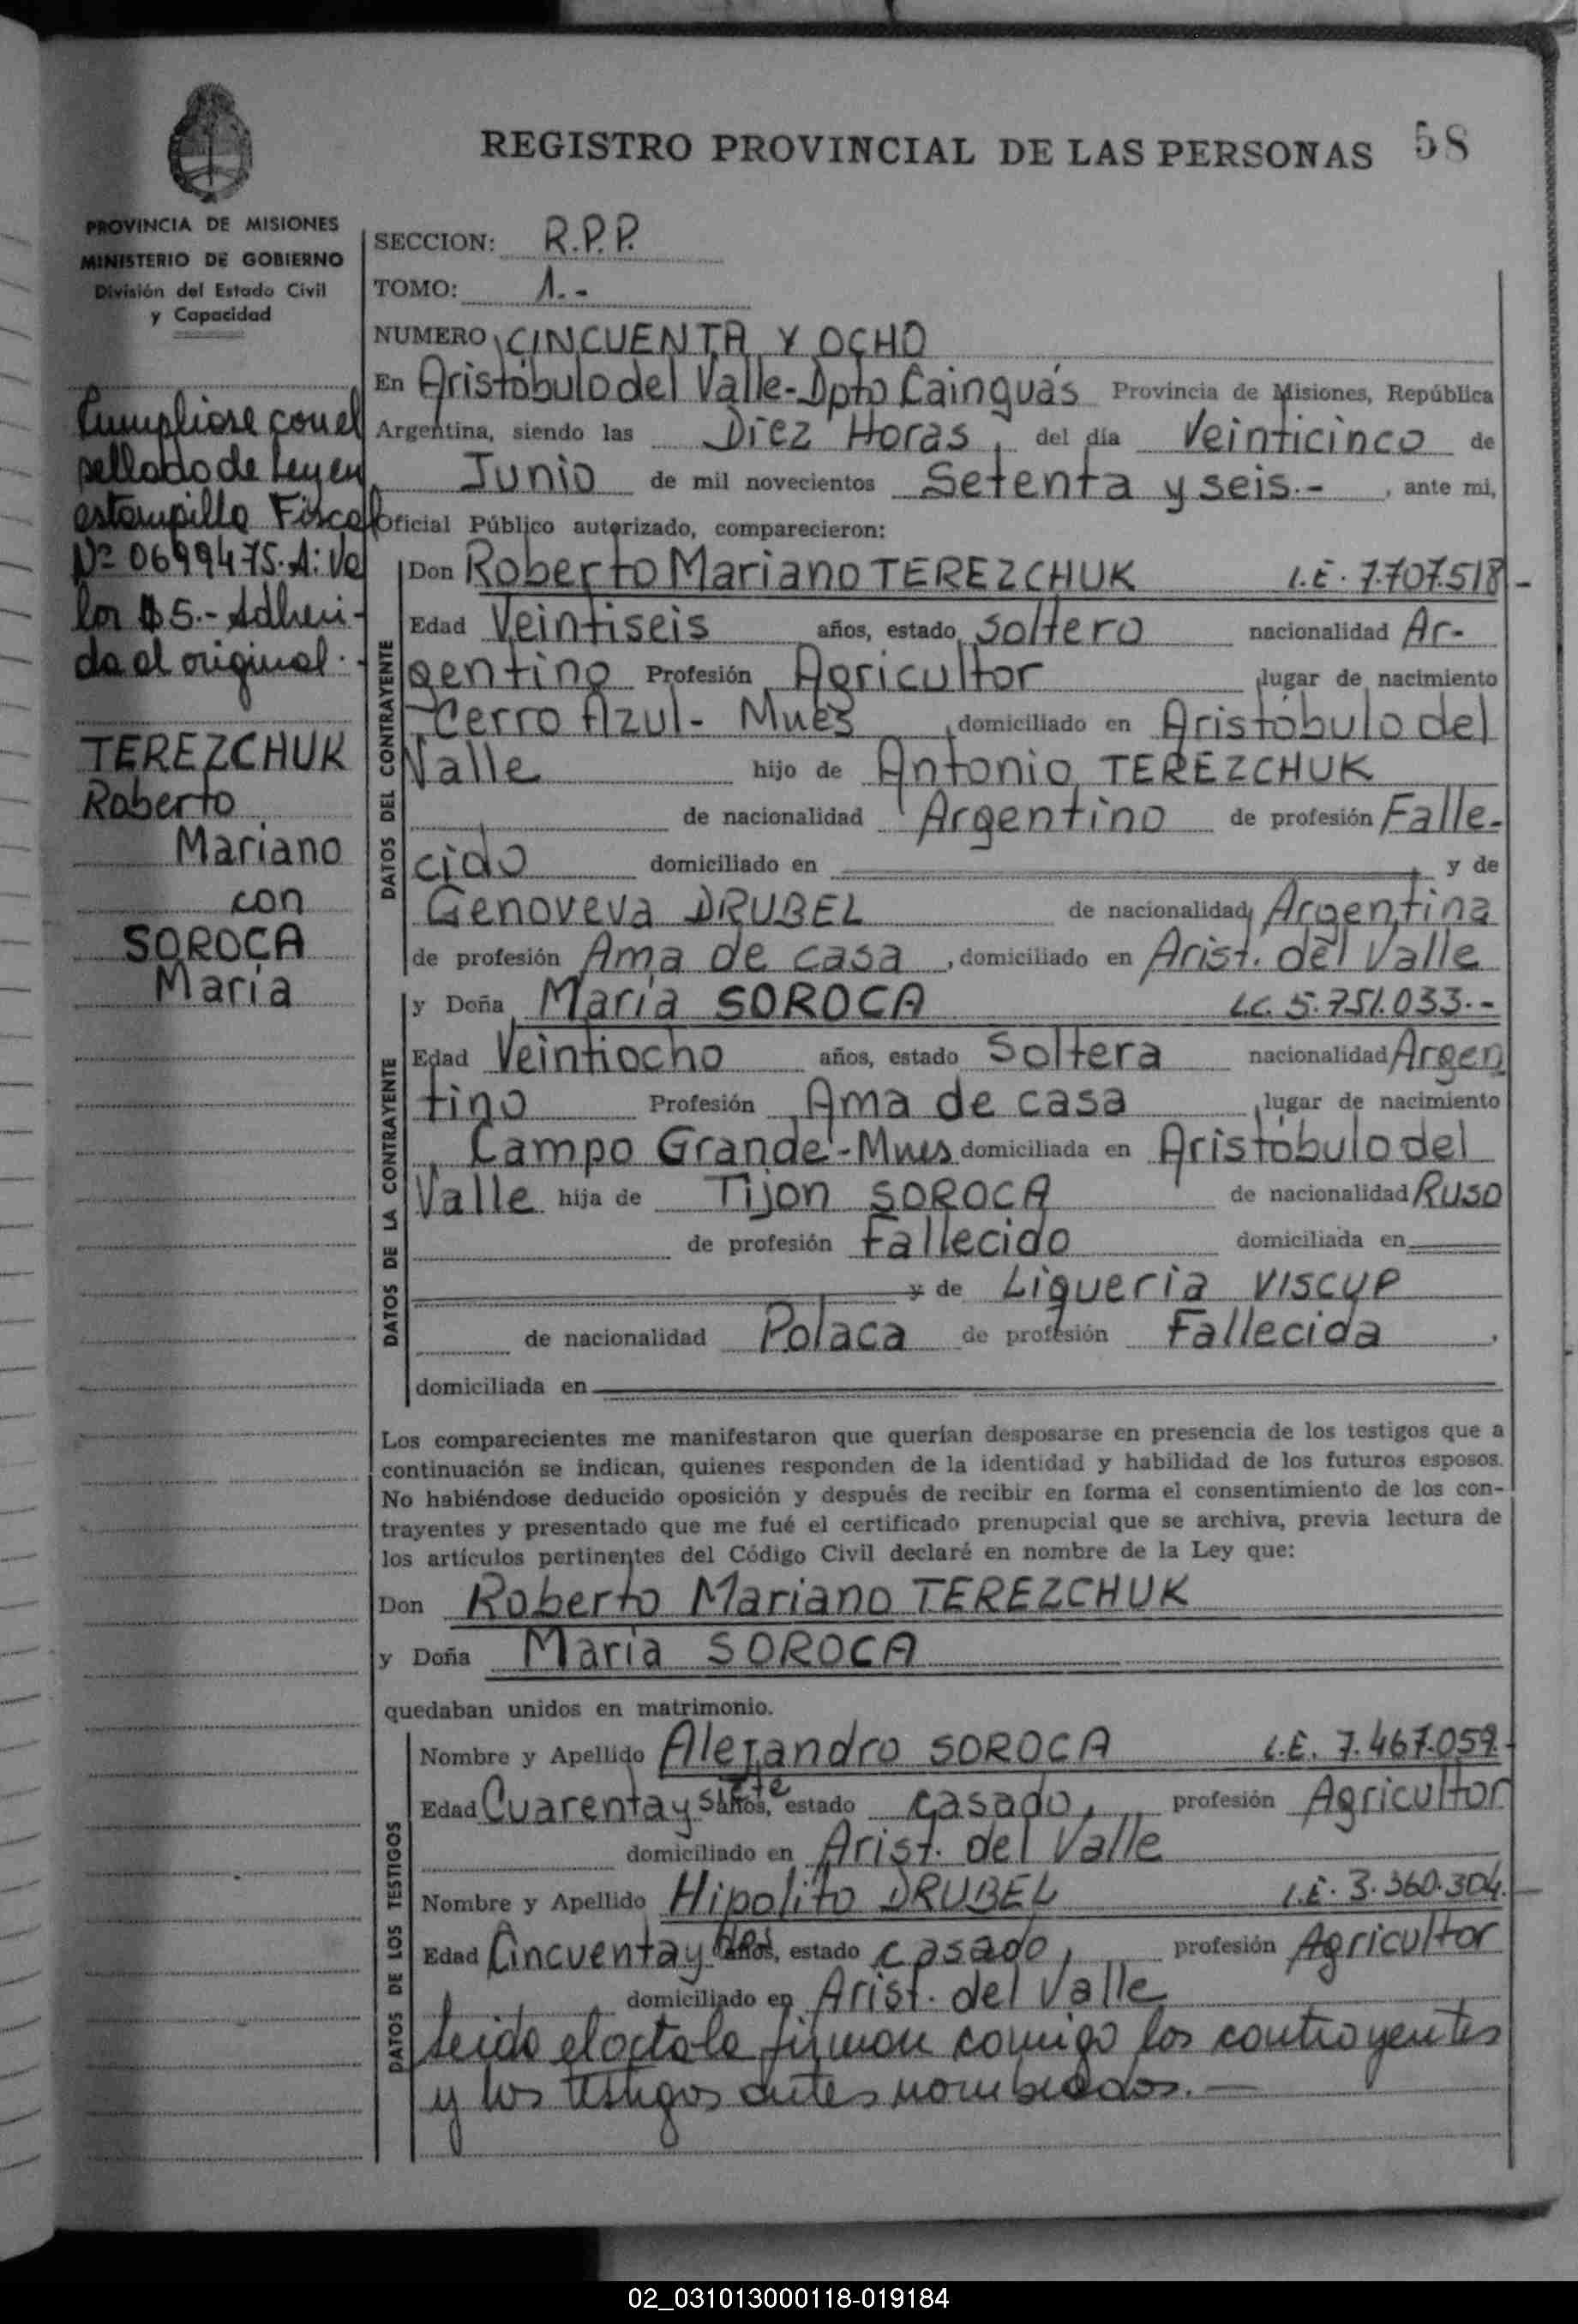 REGISTRO PROVINCIAL DE LAS PERSONAS 58
PROVINCIA DE MISIONES
MINISTERIO DE GOBIERNO
División del Estado Civil
y Capacidad
Cumpliose con el
sellado de Ley en
estampilla Fiscal
Nº 0699475.A: Va
lor $5.- Adheri-
da al original.-
TEREZCHUK
Roberto
Mariano
con
SOROCA
María
SECCION: R.P.P.
TOMO: 1.-
NUMERO CINCUENTA Y OCHO
En Aristóbulo del Valle-Dpto Cainguás Provincia de Misiones, República
Argentina, siendo las Diez Horas, del día Veinticinco de
Junio de mil novecientos Setenta y seis.- , ante mi,
Oficial Público autorizado, comparecieron:
DATOS DEL CONTRAYENTE
Don Roberto Mariano TEREZCHUK L.E. 7.707.518-
Edad Veintiseis años, estado soltero nacionalidad Ar-
gentino Profesión Agricultor lugar de nacimiento
Cerro Azul- Mnes domiciliado en Aristóbulo del
Valle hijo de Antonio TEREZCHUK
de nacionalidad Argentino de profesión Falle-
cido domiciliado en y de
Genoveva DRUBEL de nacionalidad Argentina
de profesión Ama de casa , domiciliado en Arist. del Valle
DATOS DE LA CONTRAYENTE
y Doña María SOROCA L.C. 5.751.033.-
Edad Veintiocho años, estado Soltera nacionalidad Argen
tino Profesión Ama de casa , lugar de nacimiento
Campo Grande-Mnes domiciliada en Aristóbulo del
Valle hija de Tijon SOROCA de nacionalidad Ruso
de profesión Fallecido domiciliada en
y de Liqueria VISCUP
de nacionalidad Polaca de profesión Fallecida ,
domiciliada en
Los comparecientes me manifestaron que querían desposarse en presencia de los testigos que a
continuación se indican, quienes responden de la identidad y habilidad de los futuros esposos.
No habiéndose deducido oposición y después de recibir en forma el consentimiento de los con-
trayentes y presentado que me fué el certificado prenupcial que se archiva, previa lectura de
los artículos pertinentes del Código Civil declaré en nombre de la Ley que:
Don Roberto Mariano TEREZCHUK
y Doña María SOROCA
quedaban unidos en matrimonio.
DATOS DE LOS TESTIGOS
Nombre y Apellido Alejandro SOROCA L.E. 7.467.059.-
Edad Cuarenta y siete años, estado casado, profesión Agricultor
domiciliado en Arist. del Valle
Nombre y Apellido Hipolito DRUBEL L.E. 3.360.304.-
Edad Cincuenta y años, estado casado, profesión Agricultor
domiciliado en Arist. del Valle
Leida el acta la firman comigo los contrayentes
y los testigos antes nombrados.-
02_031013000118-019184